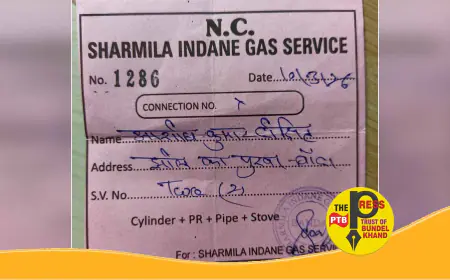 N.C.
SHARMILA INDANE GAS SERVICE
No. 1286 Date 12/3/26
CONNECTION NO.
Name कुमार दीक्षित
Address का पुरवा - बाँदा
S.V. No. Two (2)
Cylinder + PR + Pipe + Stove
For : SHARMILA INDANE GAS SERV
THE PRESS
PTB
TRUST OF
BUNDEL
KHAND